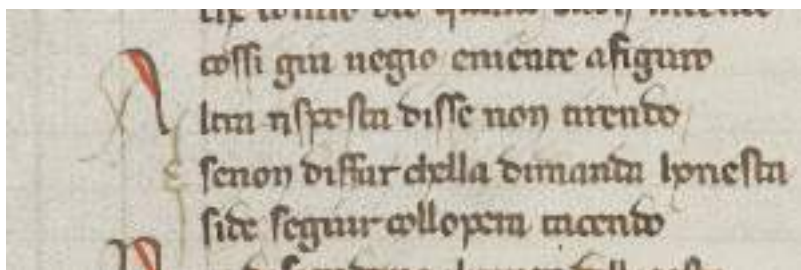 cossi giu uegio eniente afiguro
A ltra rsposta disse non tirendo
senon diffar chella dimanda honesta
side seguir collopera tacendo